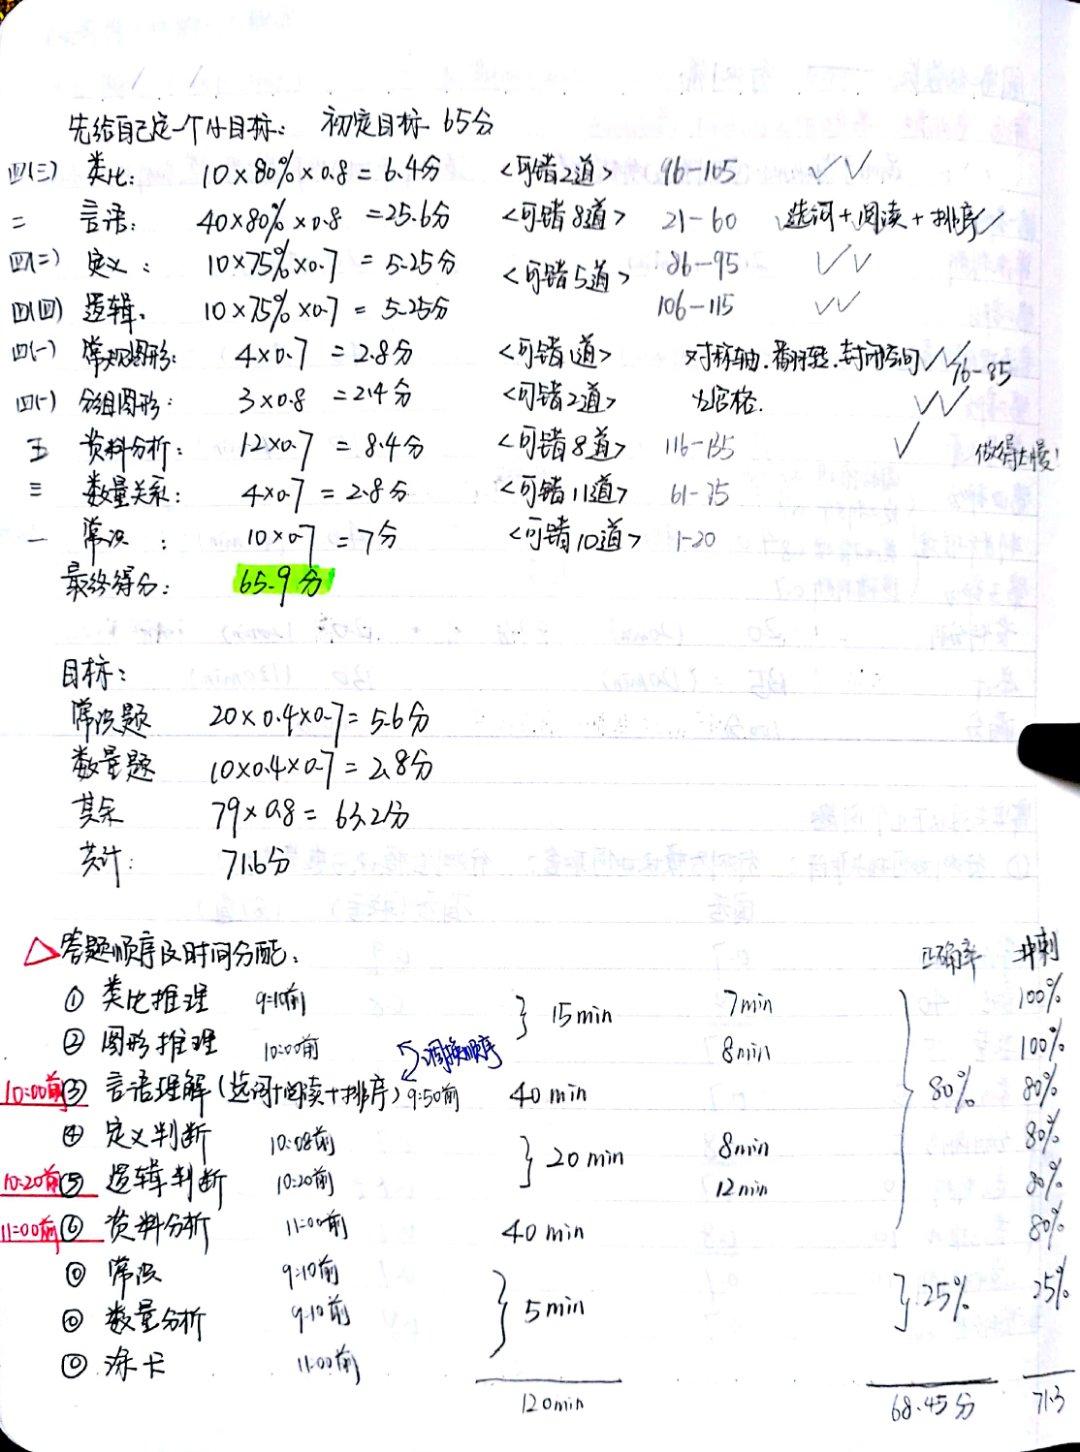 先给自己定一个小目标: 初定目标 65分
四(三) 类比: 10×80%×0.8=6.4分 <可错2道> 96-105 ✓✓
二 言语: 40×80%×0.8=25.6分 <可错8道> 21-60 ✓选词+阅读+排序✓
四(二) 定义: 10×75%×0.7=5.25分 <可错5道> 86-95 ✓✓
四(四) 逻辑: 10×75%×0.7=5.25分 106-115 ✓✓
四(一) 常规图形: 4×0.7=2.8分 <可错1道> 对称轴.翻转.封闭空间✓✓ 76-85
四(一) 分组图形: 3×0.8=2.4分 <可错2道> ✓✓
五 资料分析: 12×0.7=8.4分 <可错8道> 116-135 ✓ 做得太慢!
三 数量关系: 4×0.7=2.8分 <可错11道> 61-75
一 常识: 10×0.7=7分 <可错10道> 1-20
最终得分: 65.9分
目标:
常识题 20×0.4×0.7=5.6分
数量题 10×0.4×0.7=2.8分
其余 79×0.8=63.2分
共计: 71.6分
△答题顺序及时间分配: 正确率 冲刺
① 类比推理 9:10前 15min 7min 100%
② 图形推理 10:00前 8min 100%
调换顺序
10:00前 ③ 言语理解(选词+阅读+排序) 9:50前 40min 80% 80%
④ 定义判断 10:08前 20min 8min 80%
10:20前 ⑤ 逻辑判断 10:20前 12min 80%
11:00前 ⑥ 资料分析 11:00前 40min 80%
⓪ 常识 9:10前 5min 25% 25%
⓪ 数量分析 9:10前
⓪ 涂卡 11:00前
120min 68.45分 71.3